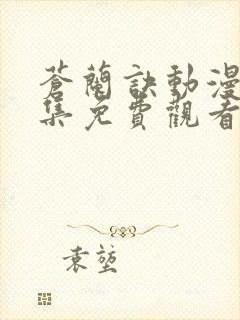 蒼蘭訣動漫
集免費觀看
袁堃